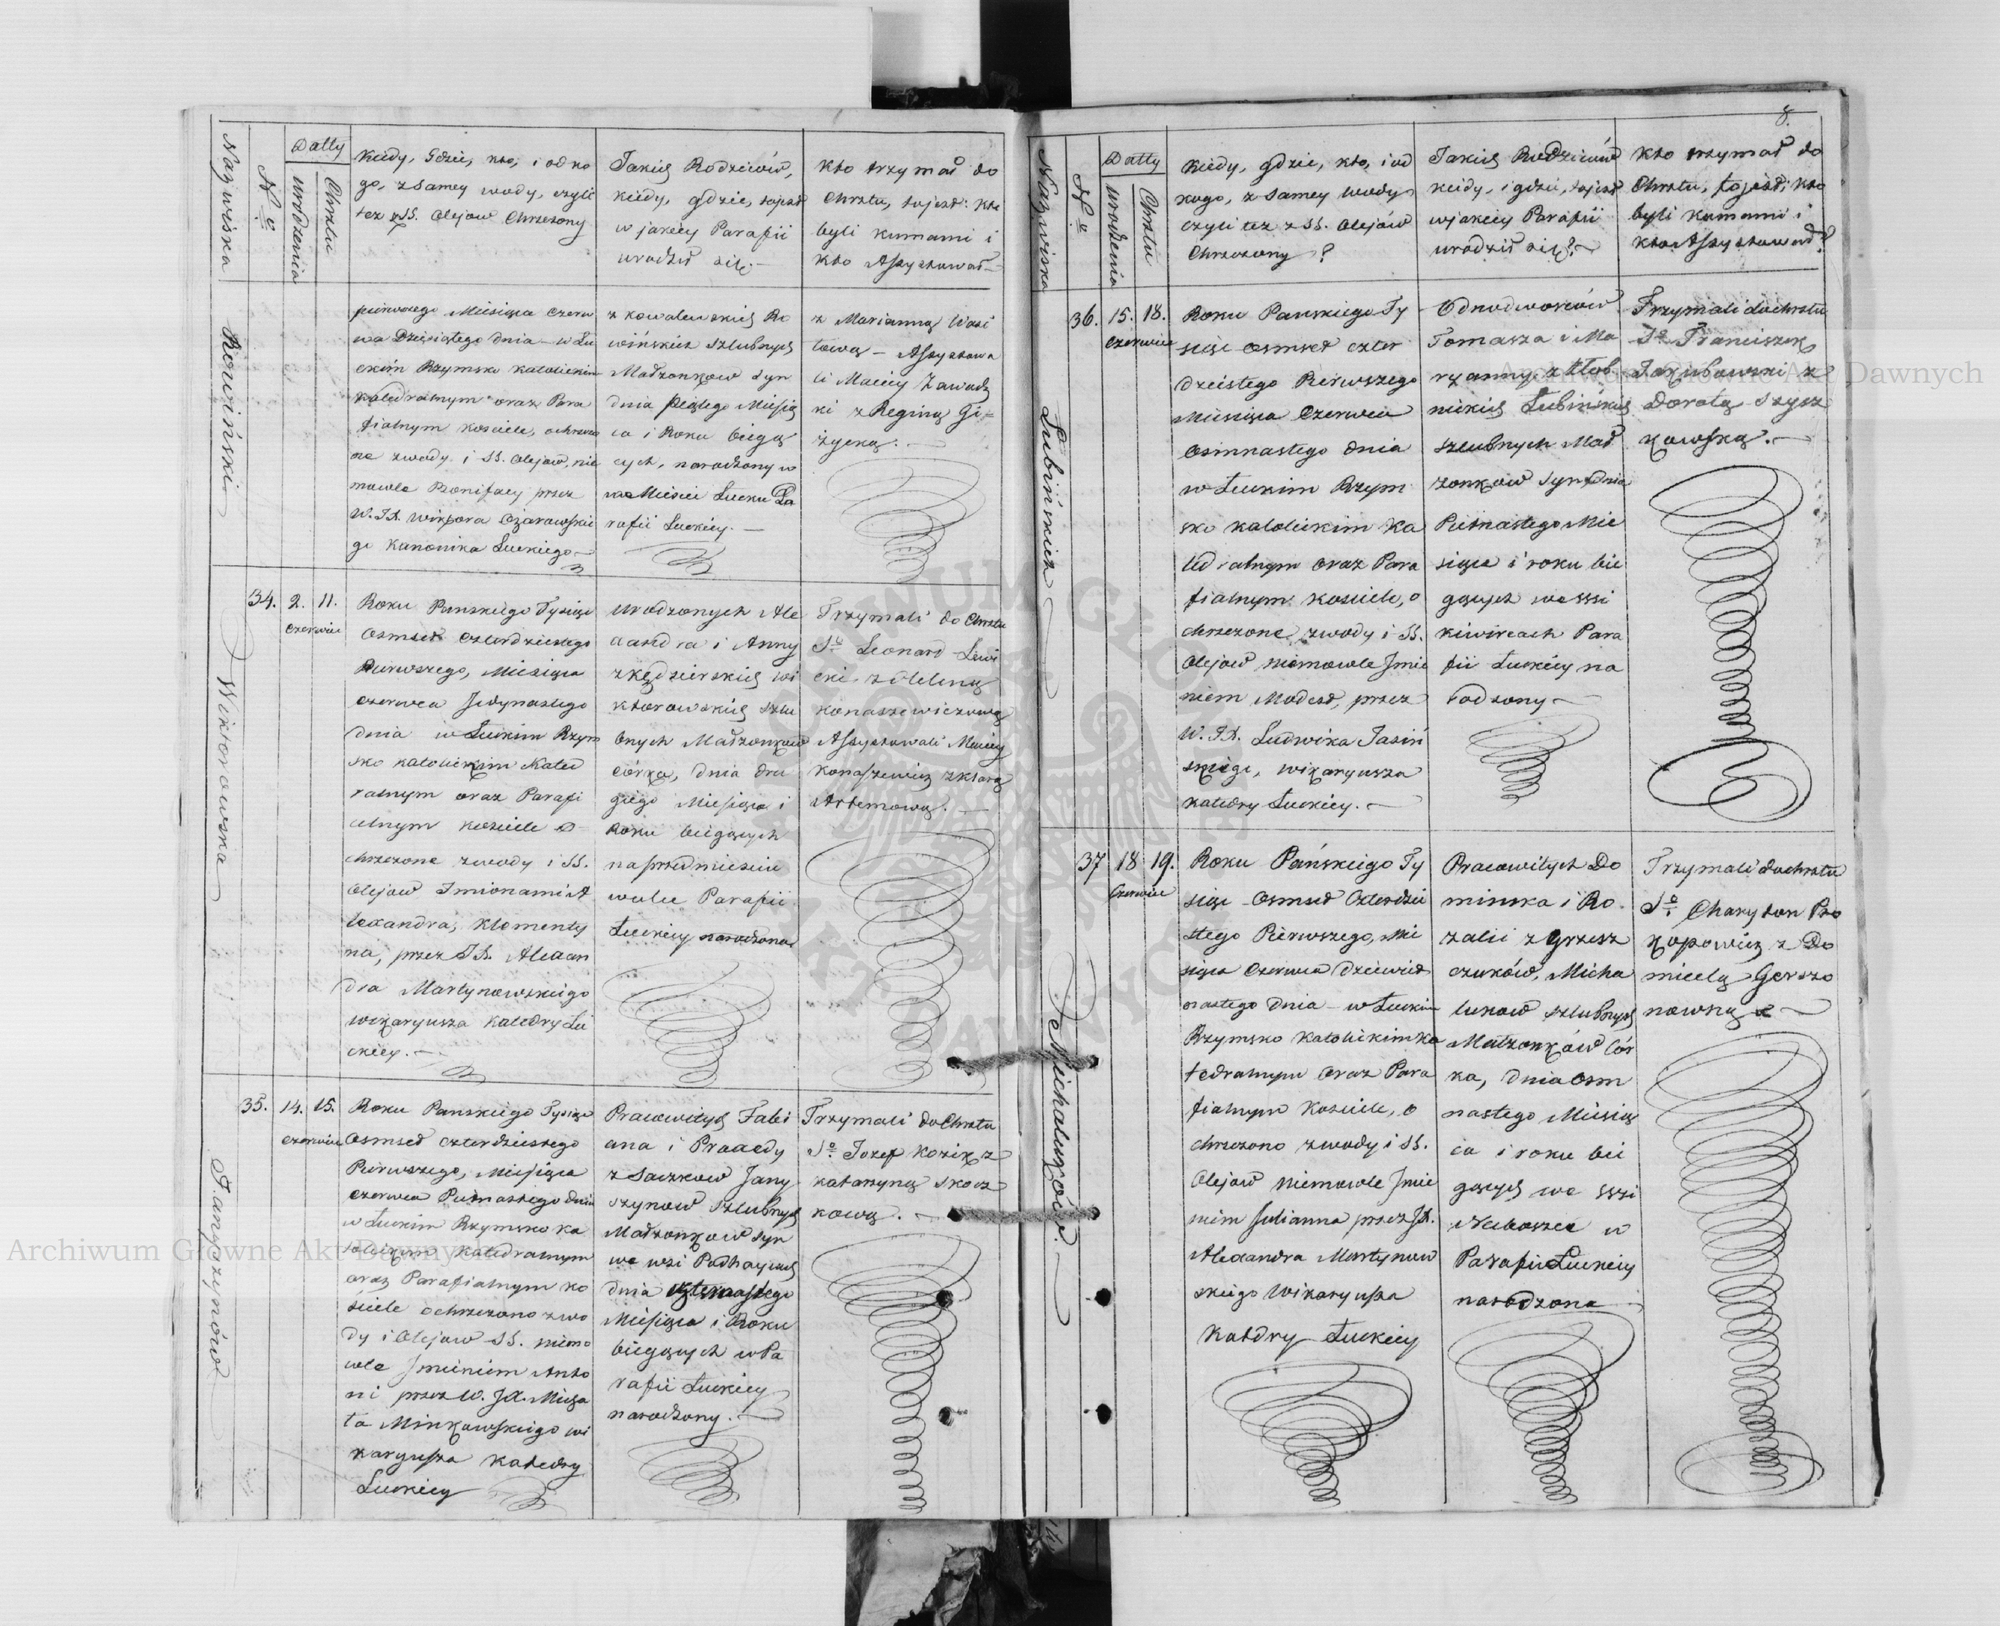 Nazwiska
N<sup>o</sup>
Datty
urodzenia
Chrztu
Kiedy, Gdzie, kto, i od ko
go, z samey wody, czyli
tez z SS. Olejow Chrzczony
Jakich Rodziców,
kiedy, gdzie, tojest
w jakiey Parafii
urodził się.—
Kto trzymał do
Chrztu, tojest: kto
byli kumami i
kto Assystował—
Rowiński
pierwszego Miesiąca Czerw
ca Dziesiątego dnia – w Łu
ckim Rzymsko katolickim
Katedralnym oraz Para
fialnym kosciele, ochrzczo
ne z wody i SS. Olejow, nie
mowle Bonifacy przez
W. JX. Wiktora Ożarowskie
go Kanonika Łuckiego—
z Kowalewskich Ro
wińskich Szlubnych
Małżonkow syn
dnia piątego Miesią
ca i Roku biegą
cych, narodzony w
Miescie Łucku Pa
rafii Łuckiey.—
z Marianną Wasi
lową – Assystowa
li Maciey Zawadz
ki z Reginą Gi-
życką.—
Wiktorowska
34.
2.
11.
Czerwiec
Roku Panskiego Tysiąc
Osmset Czterdziestego
Pierwszego, Miesiąca
Czerwca Jedynastego
dnia w Łuckim Rzym
sko katolickim Kated
ralnym oraz Parafi
alnym kosciele o
chrzczone z wody i SS.
Olejow Imionami A
lexandra, Klementy
na, przez JX. Alexan
dra Martynowskiego
wikaryusza Katedry Łu
ckiey.—
Urodzonych Ale
xandra i Anny
z Kędzierskich Wi
ktorowskich szlu
bnych Małżonkow
córka, dnia dru
giego Miesiąca i
Roku biegących
na przedmiesciu
Parafii
Łuckiey narodzona
Trzymali do Chrztu
S<sup>o</sup> Leonard Lewi
cki z Heleną
Konaszewiczową
Assystowali Maciey
Konaszewicz z Klarą
Artemową.—
Janyszynów
35.
14.
15.
Czerwiec
Roku Panskiego Tysiąc
Osmset czterdziestego
Pierwszego, Miesiąca
Czerwca Pietnastego dnia
w Łuckim Rzymsko ka
tolickim Katedralnym
oraz Parafialnym ko
sciele ochrzczono z wo
dy i Olejow SS. niemo
wle Jmieniem Anto
ni przez W. JX. Micha
ła Minkowskiego wi
karyusza Katedry
Łuckiey
Pracowitych Fabi
ana i Praxedy
z Saczkow Jany
szynow szlubnych
Małżonkow syn
we wsi Podhaycach
dnia czternastego
Miesiąca i Roku
biegących w Pa
rafii Łuckiey
narodzony.—
Trzymali do Chrztu
S<sup>o</sup> Jozef Kozik z
Katarzyną Skocz
kową.—
8.
Nazwiska
N<sup>o</sup>
Datty
urodzenia
Chrztu
Kiedy, gdzie, kto, i od
kogo, z samey wody
czyli tez z SS. Olejów
Chrzczony?
Jakich Rodziców
kiedy, i gdzie, tojest
w jakiey Parafii
urodził się?—
Kto trzymał do
Chrztu, tojest: kto
byli kumami i
kto Assystował?
Łubińskich
36.
15.
18.
Czerwiec
Roku Panskiego Ty
siąc osmset czter
dziestego Pierwszego
Miesiąca Czerwca
Osimnastego dnia
w Łuckim Rzym
sko katolickim Ka
tedralnym oraz Para
fialnym kosciele, o
chrzczone z wody i SS.
Olejow niemowle Jmie
niem Modest, przez
W. JX. Ludwika Jasiń
skiego, wikaryusza
katedry Łuckiey.—
Odnodworców
Tomasza i Ma
ryanny z Kłob
nickich Łubińskich
szlubnych Mał
żonkow syn dnia
Pietnastego Mie
siąca i roku bie
gących we wsi
Kiwircach Para
fii Łuckiey na
rodzony—
Trzymali do chrztu
S<sup>o</sup> Franciszek
Jakubowski z
Dorotą Szysz
kowską.—
Michalukow
37
18
19.
Czerwiec
Roku Pańskiego Ty
siąc Osmset Czterdzie
stego Pierwszego, Mie
siąca Czerwca Dziewięt
nastego dnia – w Łuckim
Rzymsko Katolickim Ka
tedralnym oraz Para
fialnym Kosciele, o
chrzczono z wody i SS.
Olejow niemowle Jmie
niem Julianna przez JX.
Alexandra Martynow
skiego Wikaryusza
Katdry Łuckiey
Pracowitych Do
minika i Ro-
zalii z Grzesz
czuków, Micha
lukow szlubnych
Małżonków Cór
ka, dnia Osm
nastego Miesią
ca i roku bie
gących we wsi
w
Parafii Łuckiey
narodzona
Trzymali do chrztu
S<sup>o</sup> Charyton Pro
kopowicz z Do
micelą Gerszo
nowną—
Archiwum Główne Akt Dawnych
Archiwum Główne Akt Dawnych
ARCHIWUM GŁÓWNE AKT DAWNYCH